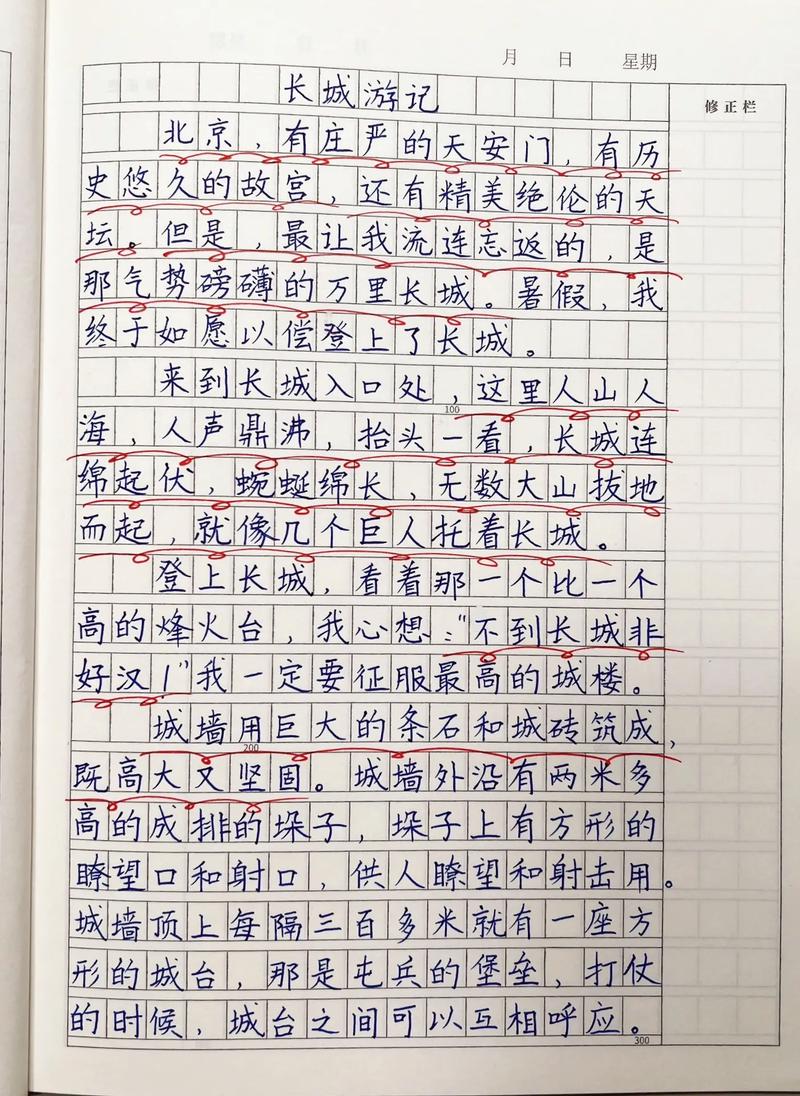 月 日 星期
修正栏
长城游记
北京，有庄严的天安门，有历
史悠久的故宫，还有精美绝伦的天
坛。但是，最让我流连忘返的，是
那气势磅礴的万里长城。暑假，我
终于如愿以偿登上了长城。
来到长城入口处，这里人山人
100
海，人声鼎沸，抬头一看，长城连
绵起伏，蜿蜒绵长，无数大山拔地
而起，就像几个巨人托着长城。
登上长城，看着那一个比一个
高的烽火台，我心想："不到长城非
好汉！"我一定要征服最高的城楼。
城墙用巨大的条石和城砖筑成，
200
既高大又坚固。城墙外沿有两米多
高的成排的垛子，垛子上有方形的
瞭望口和射口，供人瞭望和射击用。
城墙顶上每隔三百多米就有一座方
形的城台，那是屯兵的堡垒，打仗
的时候，城台之间可以互相呼应。
300